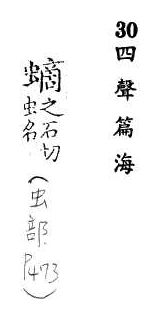 30四聲篇海
之石切
虫名
(虫部P473)